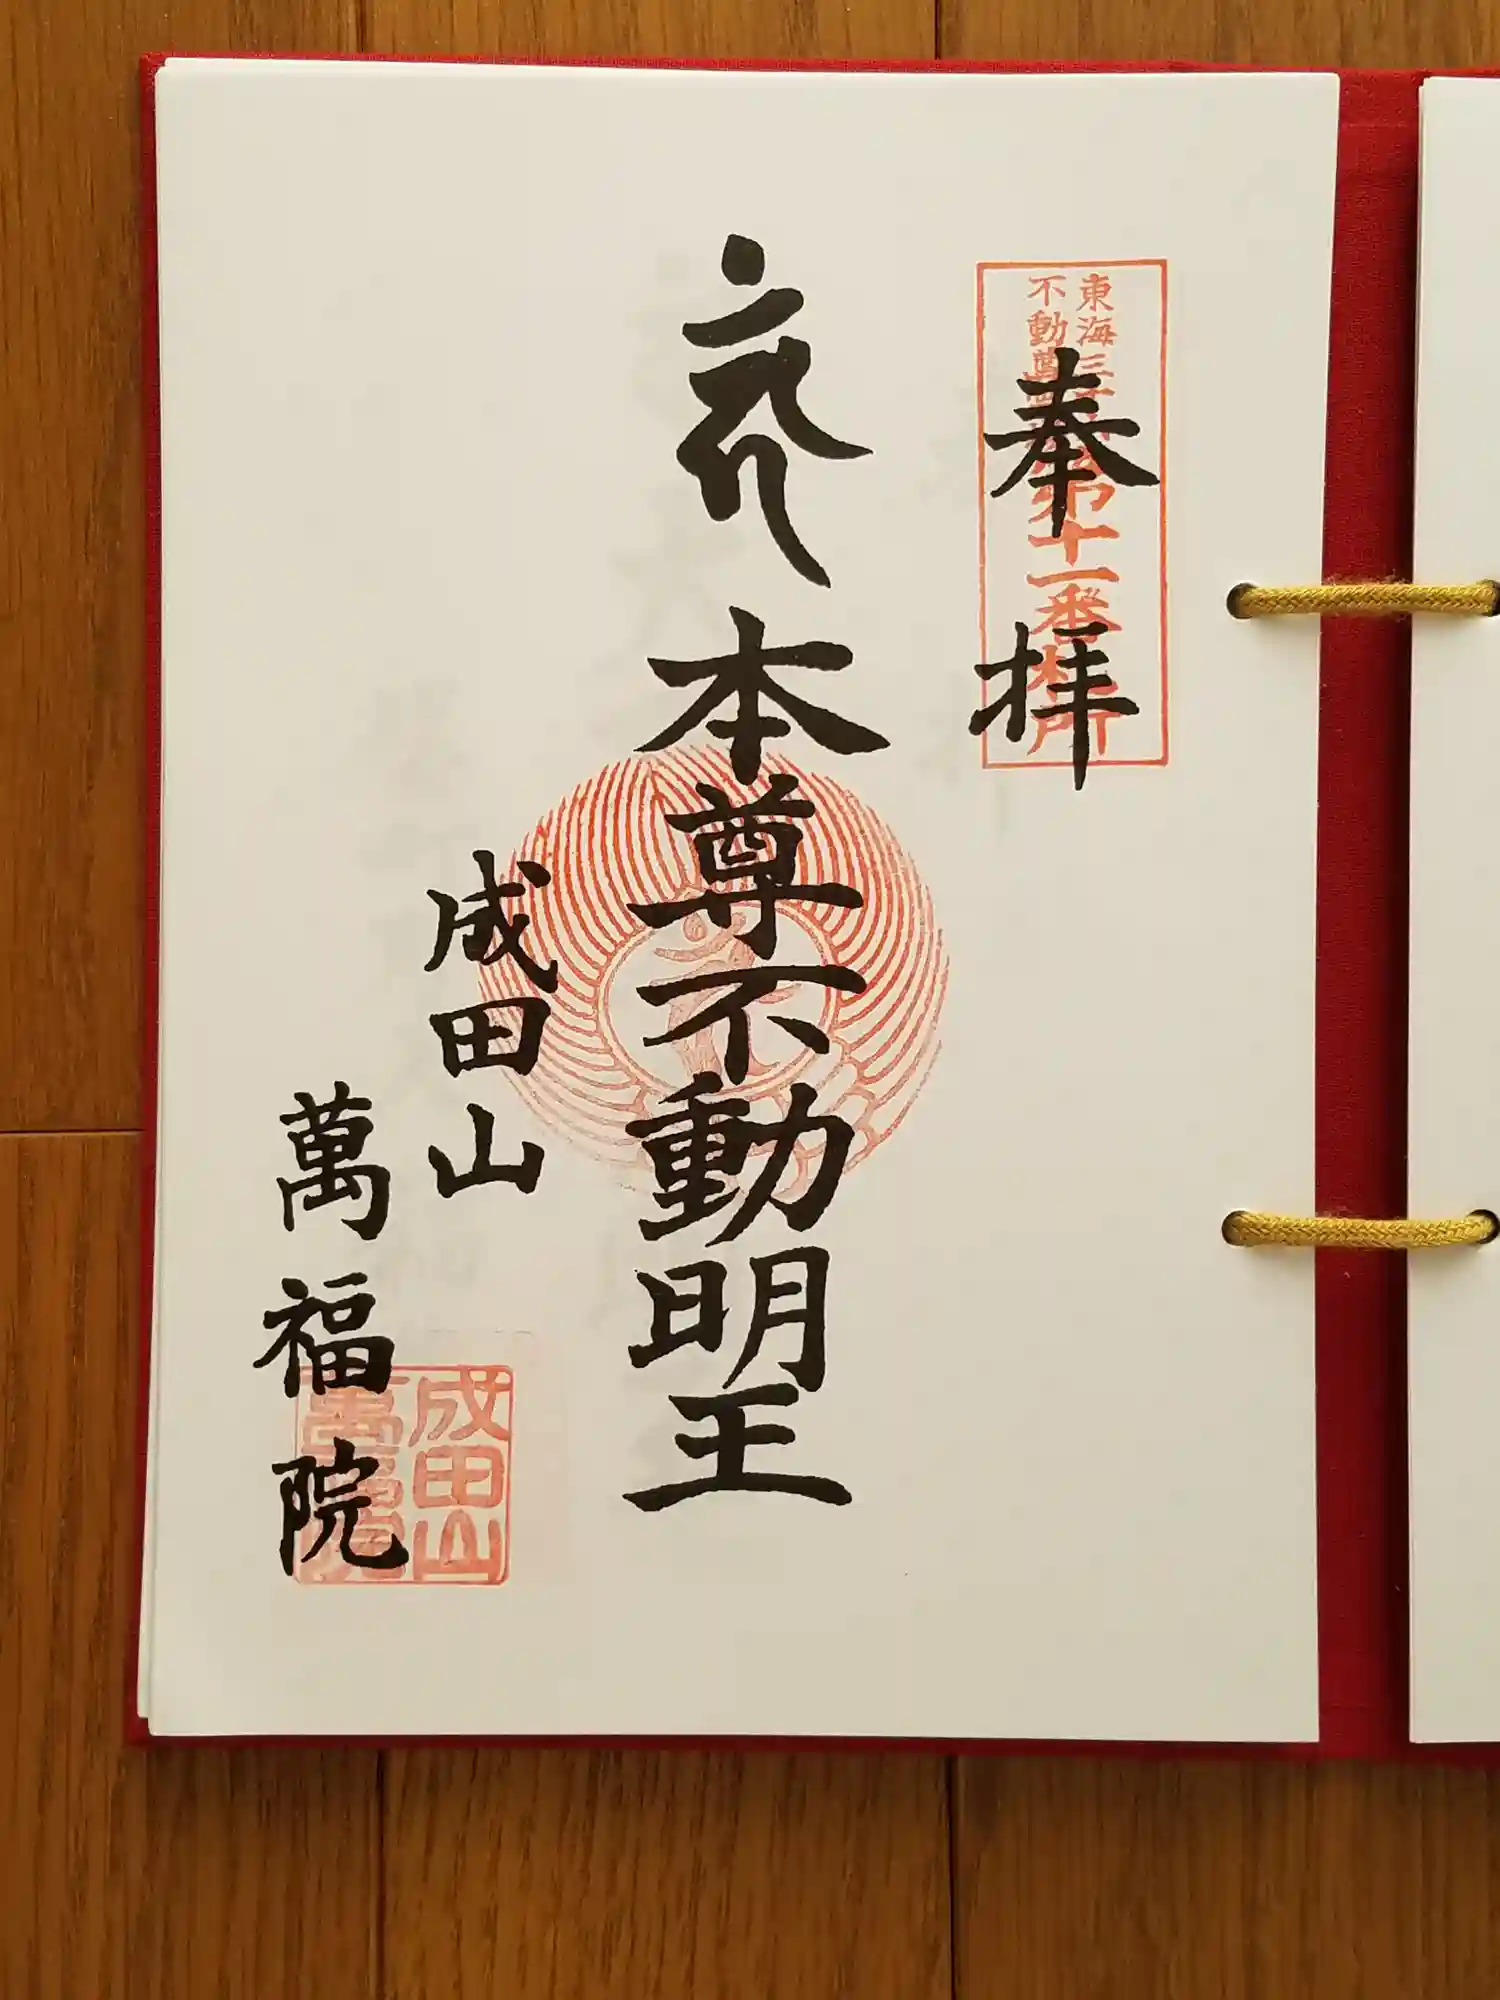 奉拝
東海三十六
不動尊霊場
第十一番札所
本尊不動明王
成田山
萬福院
成田山
萬福院